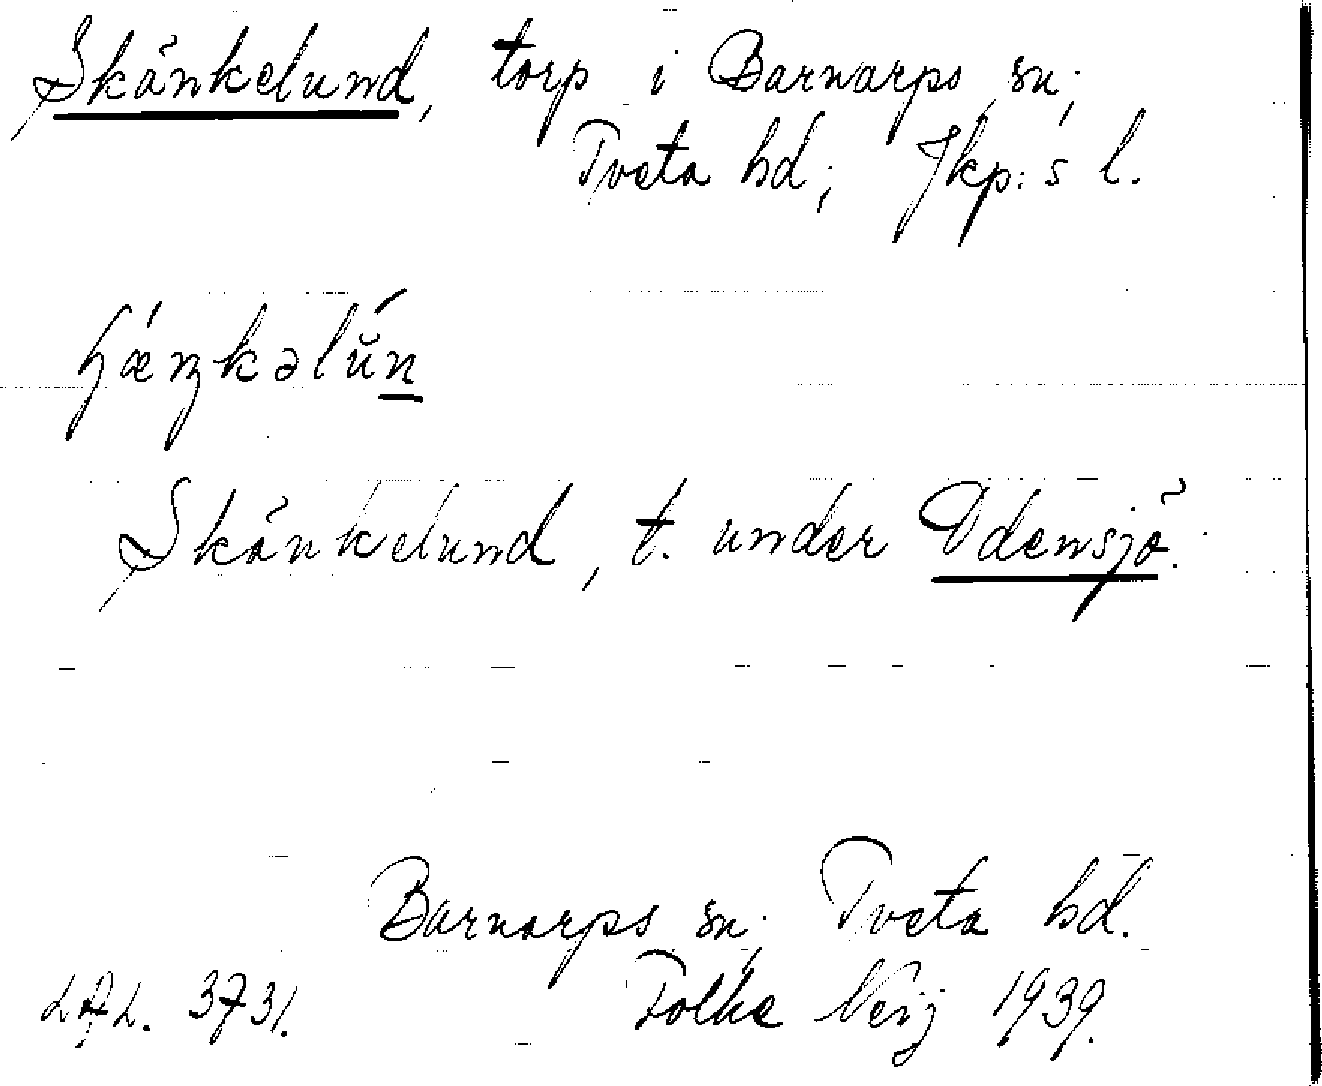 Skänkelund, torp i Barnarps sn;
Tveta hd; Jkp:s l.
ɧǽŋkəlǔń
Skänkelund, t. under Odensjö.
Barnarps sn; Tveta hd.
LAL. 3731. Folke Neij 1939.